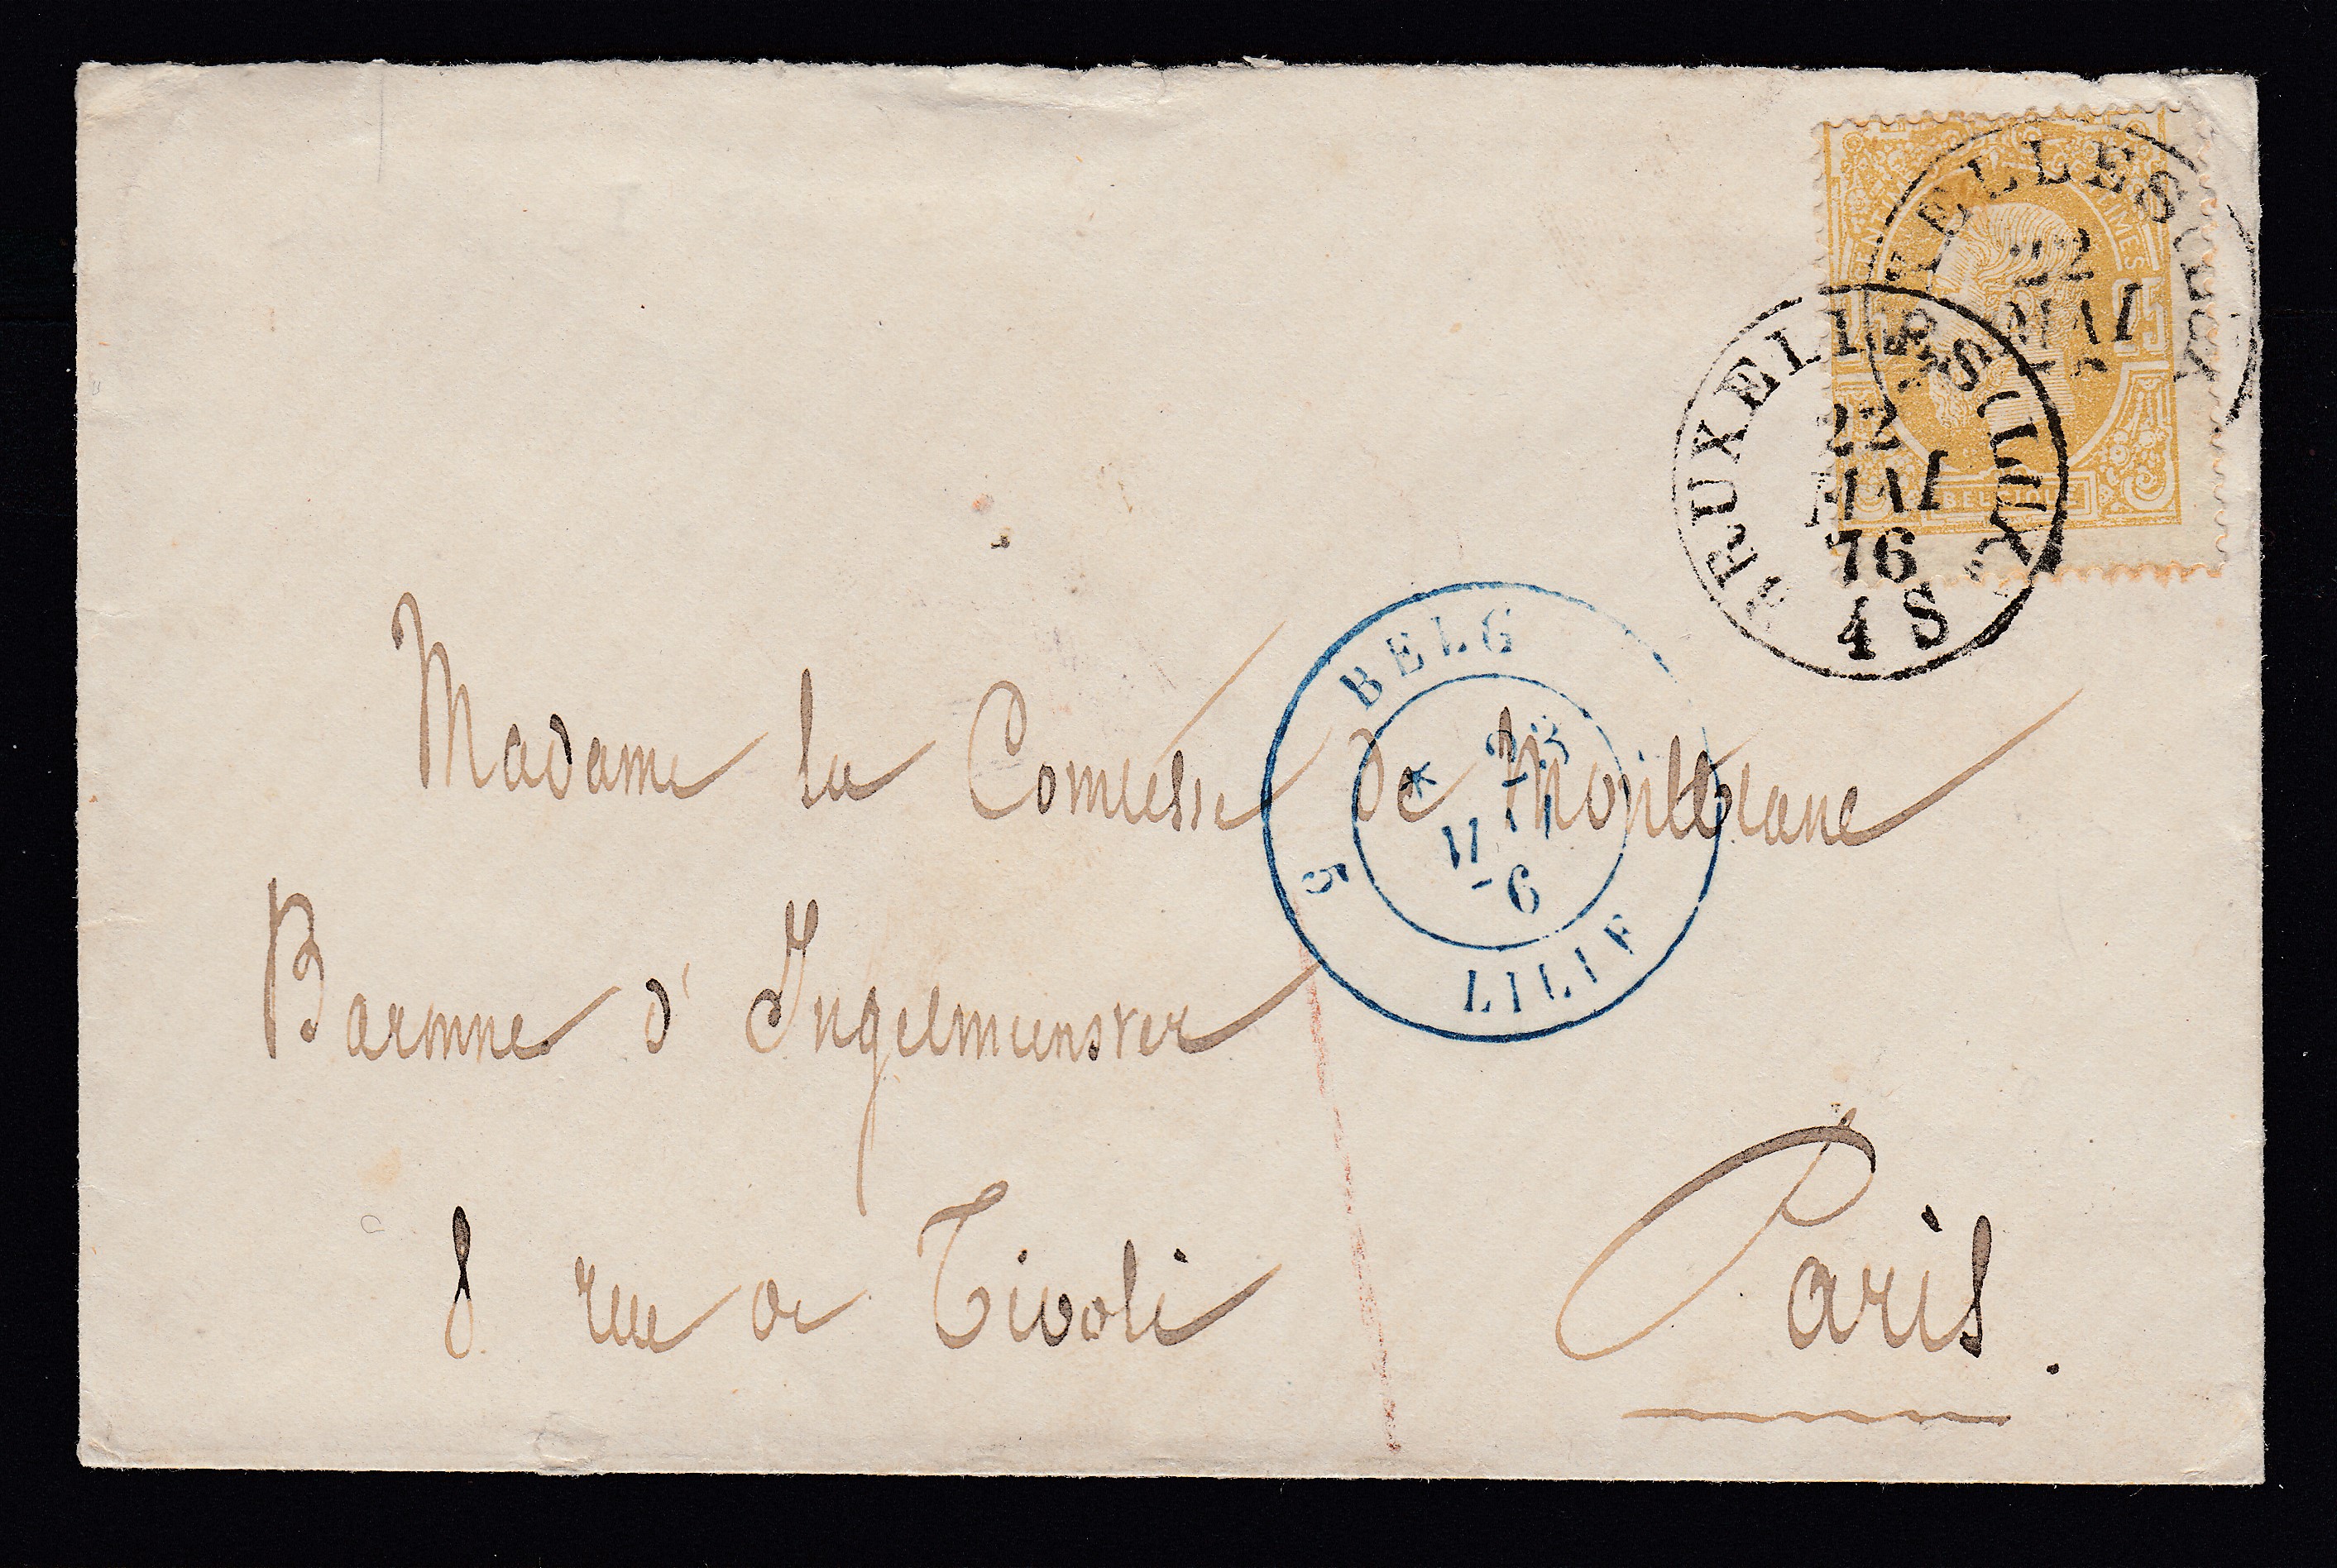 CENTIMES
25
BELGIQUE
BRUXELLES
22
MAI
BRUXELLES (LUX.)
22
MAI
76
4 S
BELG
5 LILLE
Madame la Comtesse de Montblanc
Baronne d'Ingelmunster
8 rue de Tivoli
Paris.